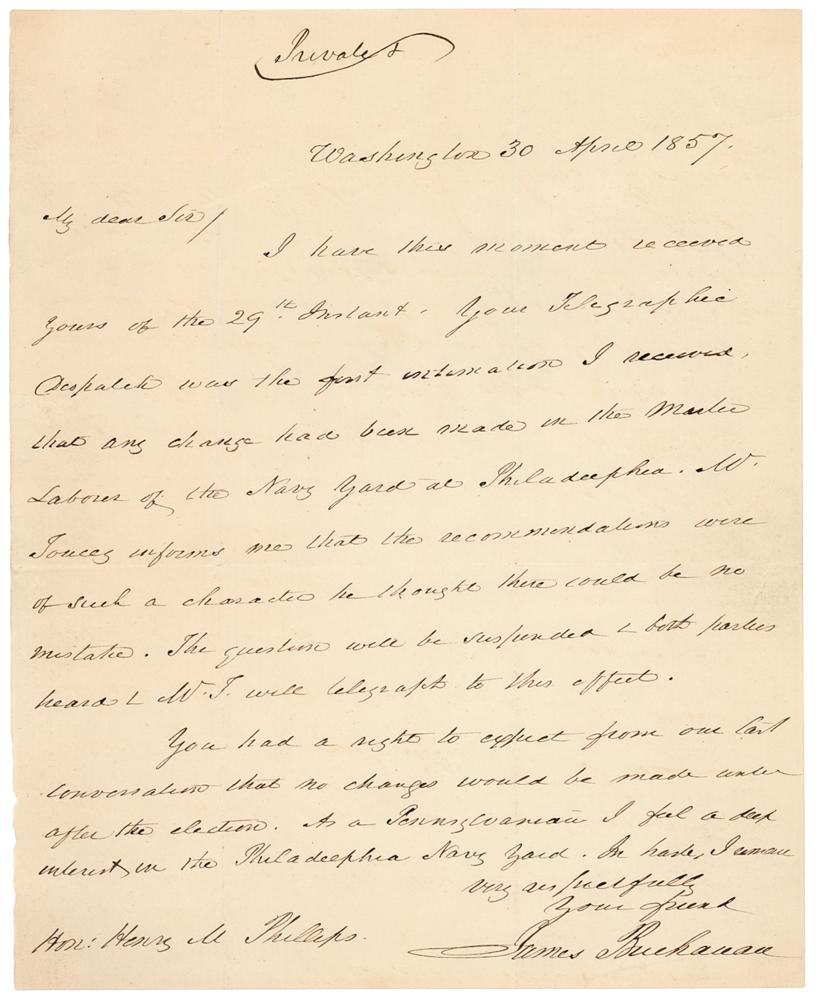 Private
Washington 30 April 1857.
My dear Sir/
I have this moment received
yours of the 29th Instant. Your Telegraphic
Despatch was the first intimation I received,
that any change had been made in the Master
Laborer of the Navy Yard at Philadelphia. Mr.
Toucey informs me that the recommendations were
of such a character he thought there could be no
mistake. The question will be suspended & both parties
heard & Mr. T. will telegraph to this effect.
You had a right to expect from our last
conversation that no changes would be made until
after the election. As a Pennsylvanian I feel a deep
interest in the Philadelphia Navy Yard. In haste, I remain
very respectfully
Your friend
James Buchanan
Hon: Henry M Phillips.